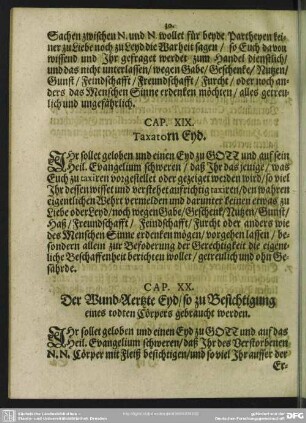 10.
Sachen zwischen N. und N. wollet für beyde Partheyen kei-
ner zu Liebe noch zu Leyd die Warheit sagen / so Euch davon
wissend und Ihr gefraget werdet zum Handel dienstlich /
und das nicht unterlassen / wegen Gabe / Geschencke / Nutzen /
Gunst / Feindschafft / Freundschafft / Furcht / oder noch an-
ders das Menschen Sinne erdencken möchten / alles getreu-
lich und ungefährlich.
CAP. XIX.
Taxatorn Eyd.
Ihr sollet geloben und einen Eyd zu GOTT und auf sein
Heil. Evangelium schweren / daß Ihr dasjenige / was
Euch zu taxiren vorgestellet oder gezeiget werden wird / so viel
Ihr dessen wisset und verstehet aufrichtig taxiren / den wahren
eigentlichen Wehrt vermelden und darunter keinen etwas zu
Liebe oder Leyd / noch wegen Gabe / Geschenck / Nutzen / Gunst /
Haß / Freundschafft / Feindschafft / Furcht oder anders wie
des Menschen Sinne erdencken mögen / vorgehen lassen / be-
sondern allein zur Befoderung der Gerechtigkeit die eigent-
liche Beschaffenheit berichten wollet / getreulich und ohn Ge-
fährde.
CAP. XX.
Der Wund-Aertzte Eyd / so zu Besichtigung
eines todten Cörpers gebraucht werden.
Ihr sollet geloben und einen Eyd zu GOTT und auf das
Heil. Evangelium schweren / daß Ihr des Verstorbenen
N. N. Cörper mit Fleiß besichtigen / und so viel Ihr ausser der
Er-